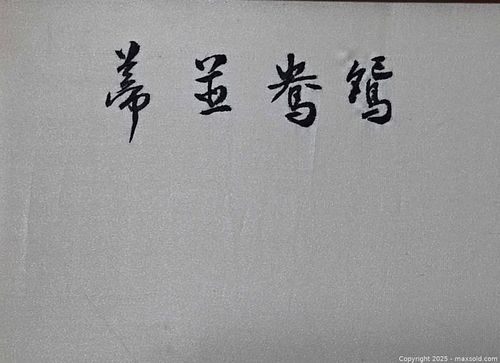 鴛鴦並蒂
Copyright 2025 - maxsold.com